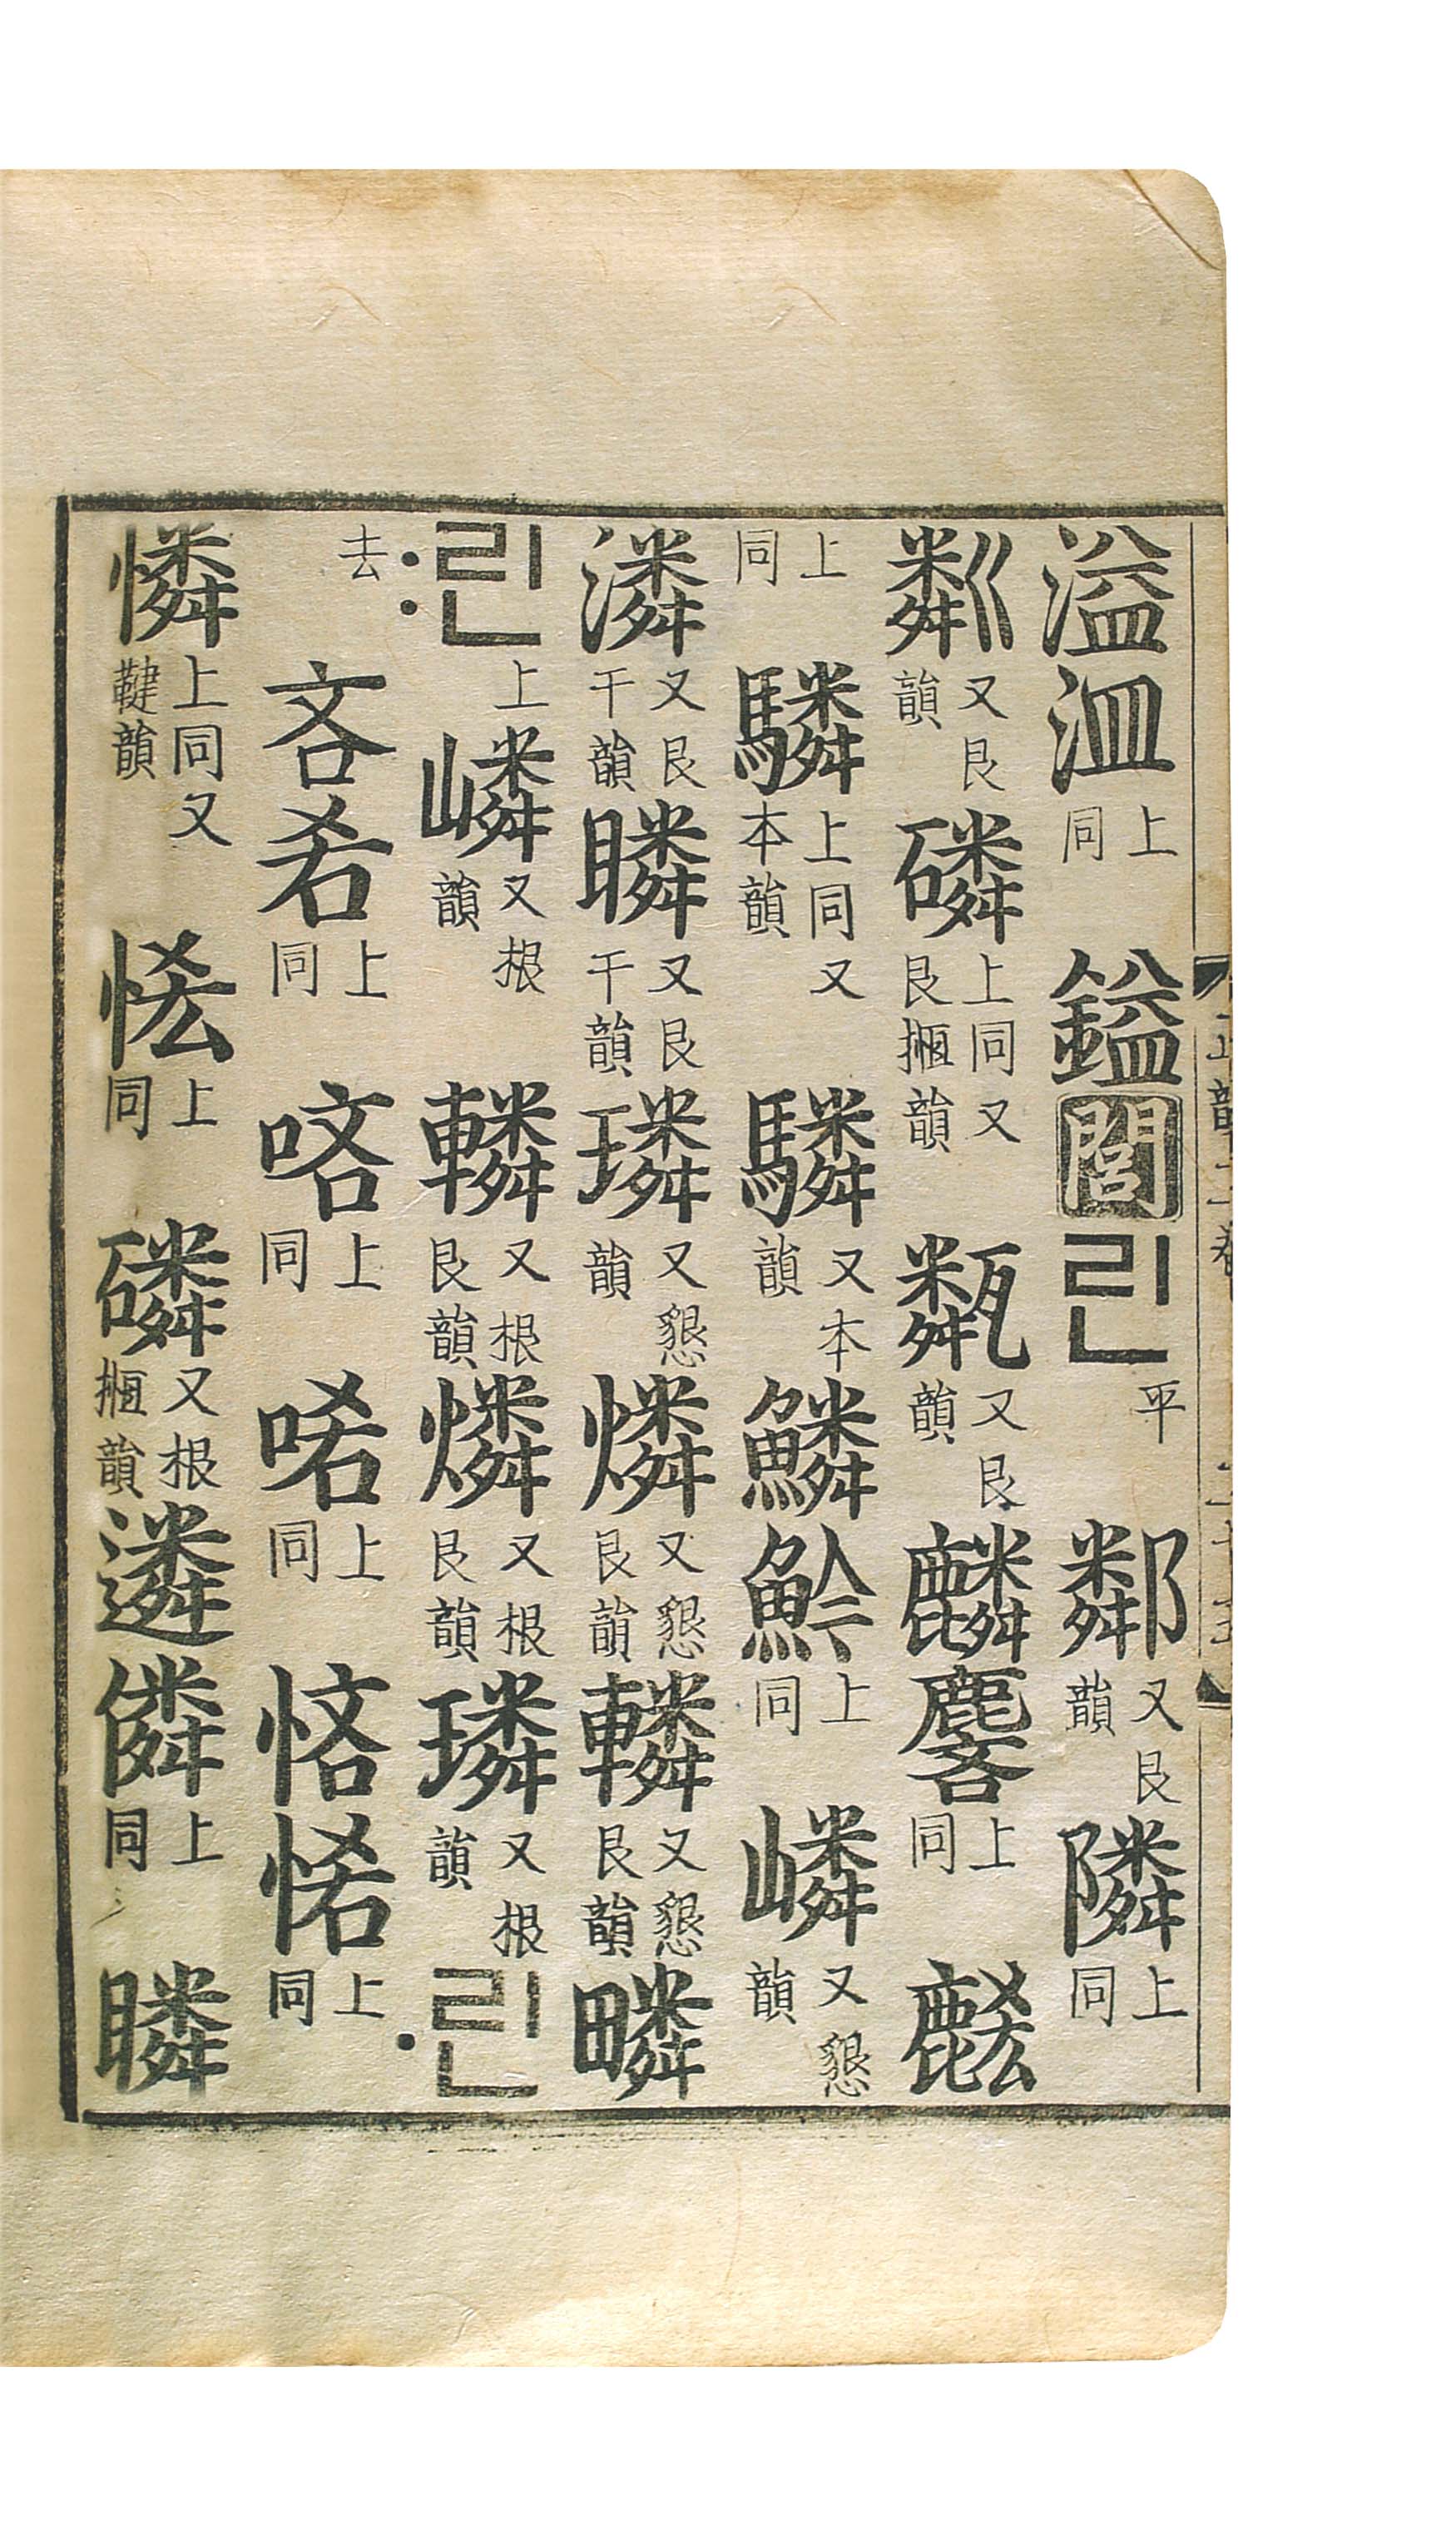 溢洫上同 鎰 閭 린平 鄰又艮韻 隣上同
粼又艮韻 磷上同又艮搄韻 甐又艮韻 麟 麐上同
上同 驎上同又本韻 驎又本韻 鱗 魿上同 嶙又懇韻
潾又艮干韻 瞵又艮干韻 璘又懇韻 燐又懇艮韻 轔又懇艮韻 疄
린上 嶙又根韻 轔又根艮韻 燐又根艮韻 璘又根韻 린
去 吝 㖁上同 唥上同 唏上同 悋 悕上同
憐上同又鞬韻 㤿上同 磷又根搄韻 遴 僯上同 瞵